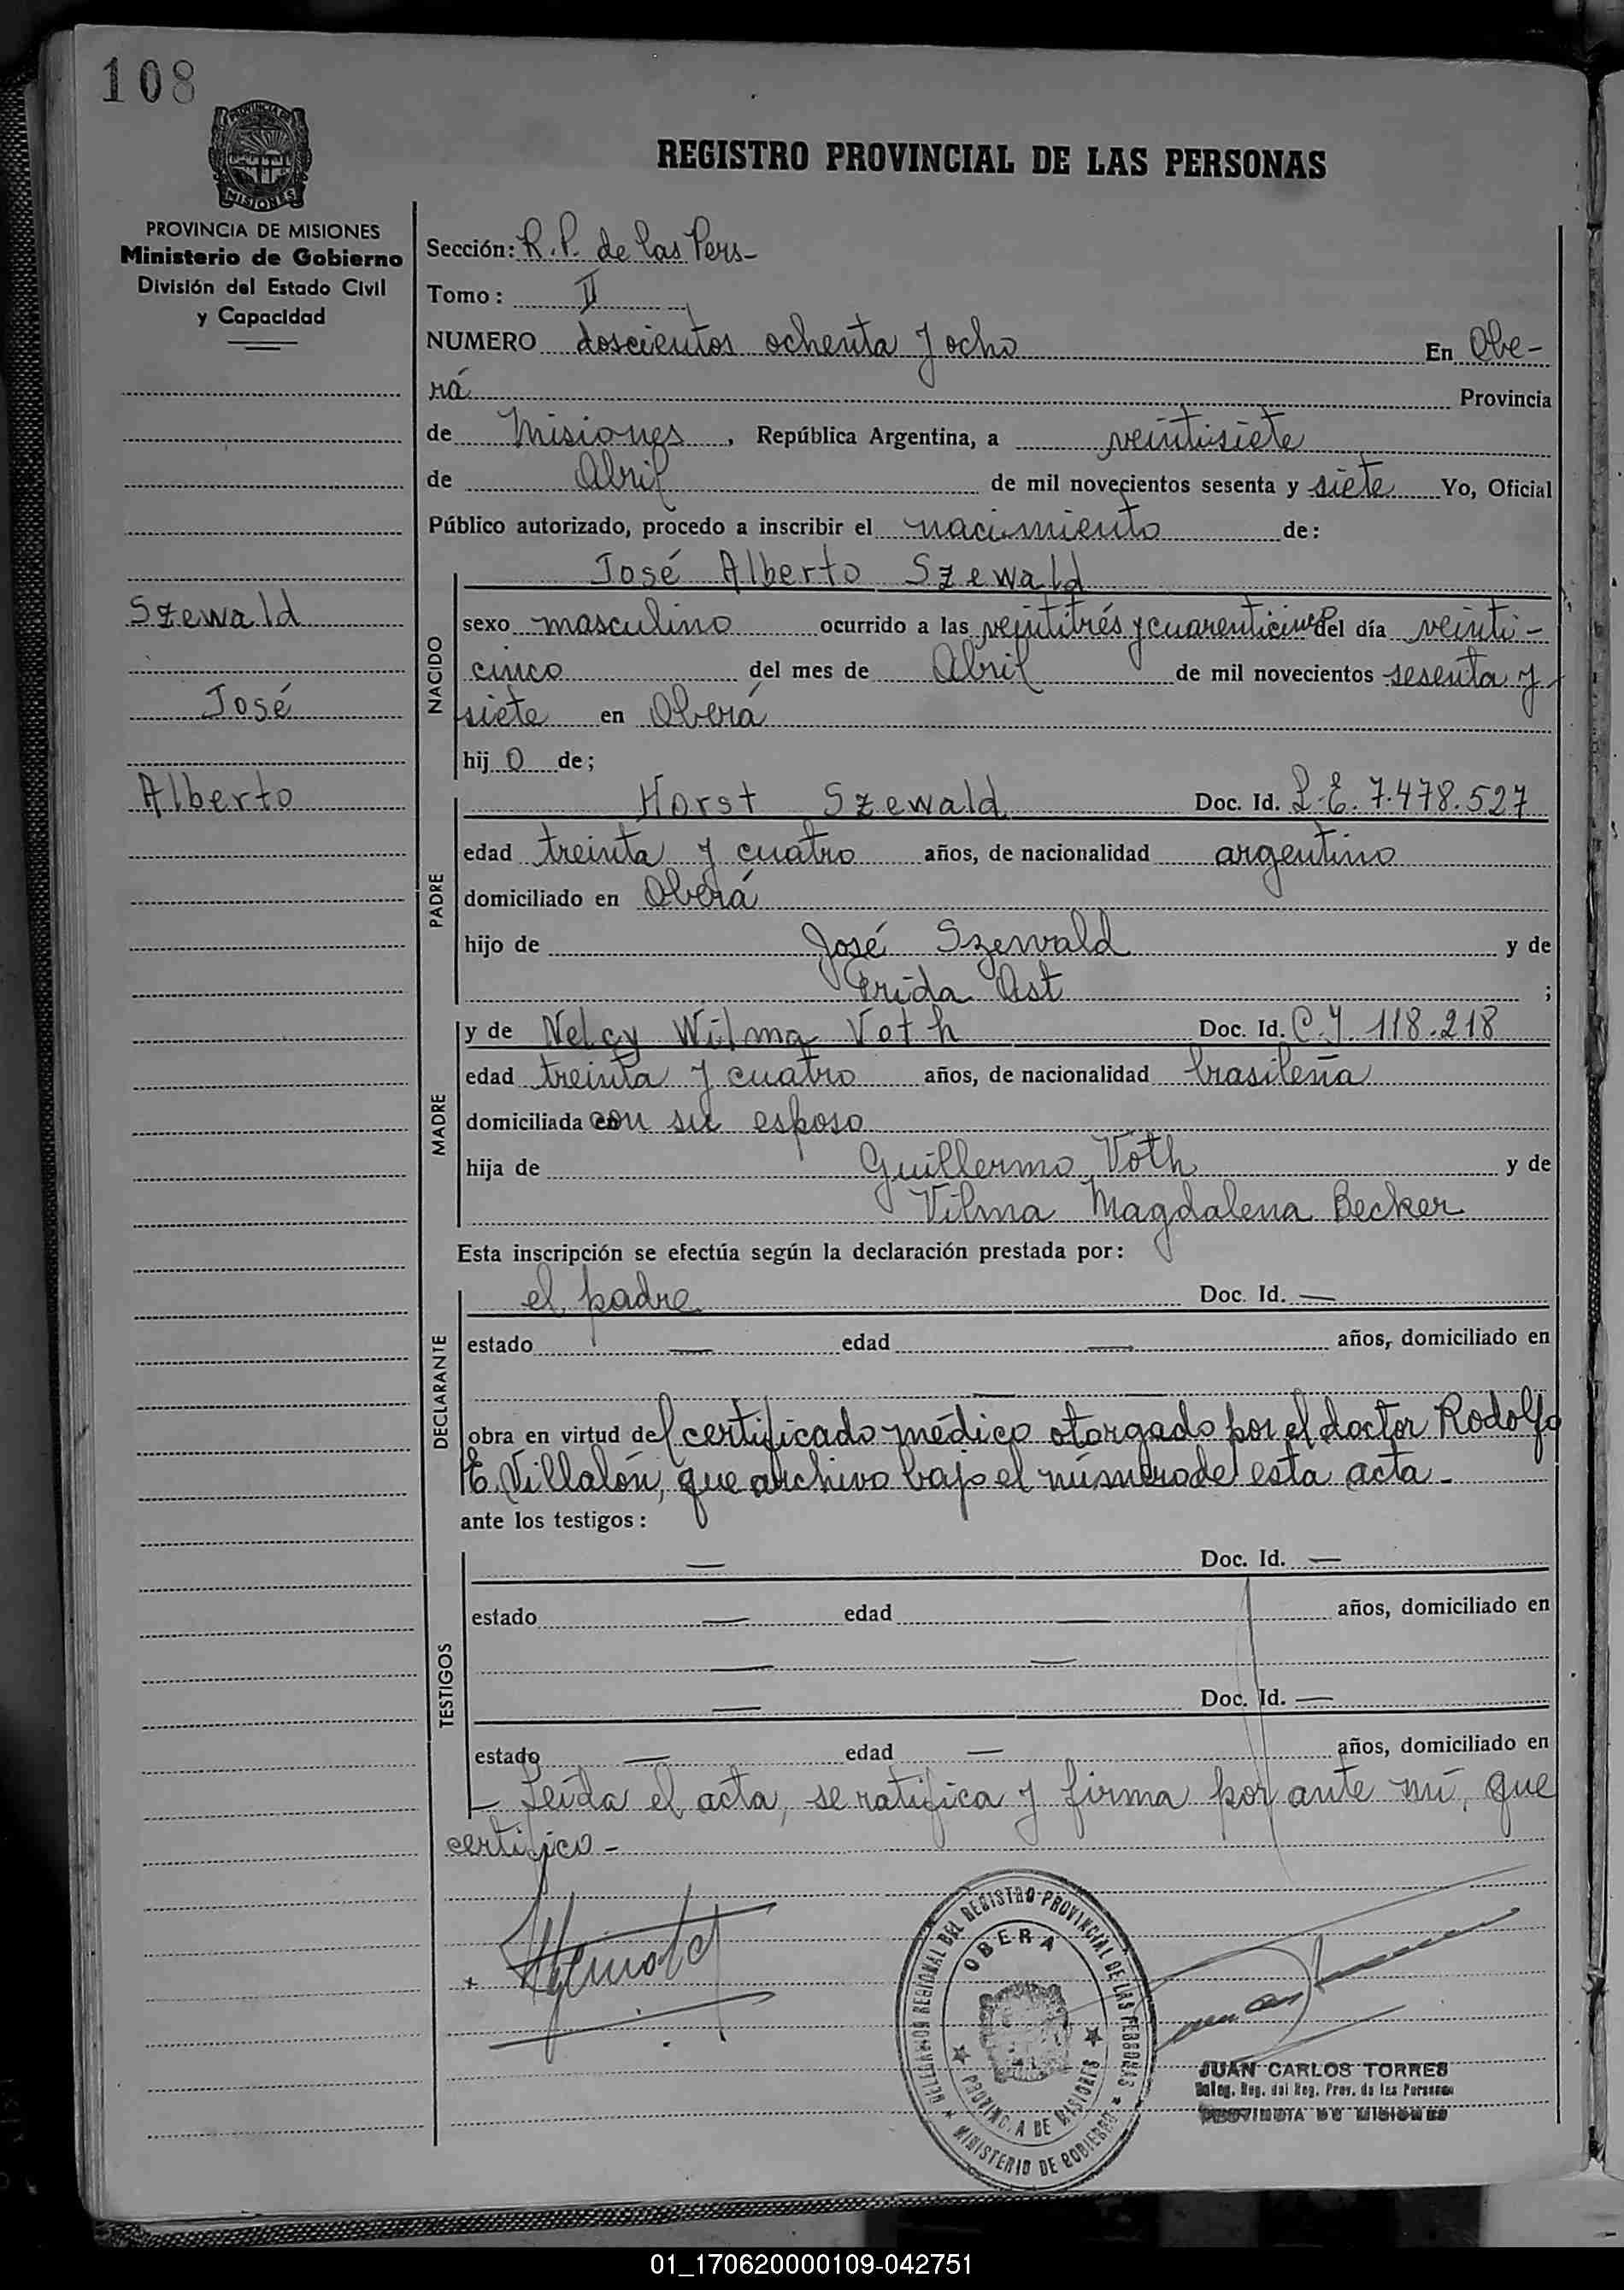 108
PROVINCIA DE
MISIONES
REGISTRO PROVINCIAL DE LAS PERSONAS
PROVINCIA DE MISIONES
Ministerio de Gobierno
División del Estado Civil
y Capacidad
Sección: R.P. de las Pers-
Tomo: II
NUMERO doscientos ochenta y ocho En Obe-
rá Provincia
de Misiones, República Argentina, a veintisiete
de Abril de mil novecientos sesenta y siete Yo, Oficial
Público autorizado, procedo a inscribir el nacimiento de:
José Alberto Szewald
Szewald
José
Alberto
NACIDO
sexo masculino ocurrido a las veintitrés y cuarenticinco del día veinti-
cinco del mes de Abril de mil novecientos sesenta y
siete en Oberá
hij o de;
PADRE
Horst Szewald Doc. Id. L.E. 7.478.527
edad treinta y cuatro años, de nacionalidad argentino
domiciliado en Oberá
hijo de José Szewald y de
Frida Ast ;
MADRE
y de Nelcy Wilma Voth Doc. Id. C.I. 118.218
edad treinta y cuatro años, de nacionalidad brasileña
domiciliada con su esposo
hija de Guillermo Voth y de
Vilma Magdalena Becker
Esta inscripción se efectúa según la declaración prestada por:
DECLARANTE
el padre Doc. Id. —
estado — edad — años, domiciliado en
— —
obra en virtud del certificado médico otorgado por el doctor Rodolfo
E. Villalón, que archivo bajo el número de esta acta -
ante los testigos:
TESTIGOS
— Doc. Id. —
estado — edad — años, domiciliado en
— —
— Doc. Id. —
estado — edad — años, domiciliado en
— Leída el acta, se ratifica y firma por ante mí, que
certifico -
DELEGACION REGIONAL DEL REGISTRO PROVINCIAL DE LAS PERSONAS
OBERA
PROVINCIA DE MISIONES
MINISTERIO DE GOBIERNO
JUAN CARLOS TORRES
Deleg. Reg. del Reg. Prov. de las Personas
PROVINCIA DE MISIONES
01_170620000109-042751